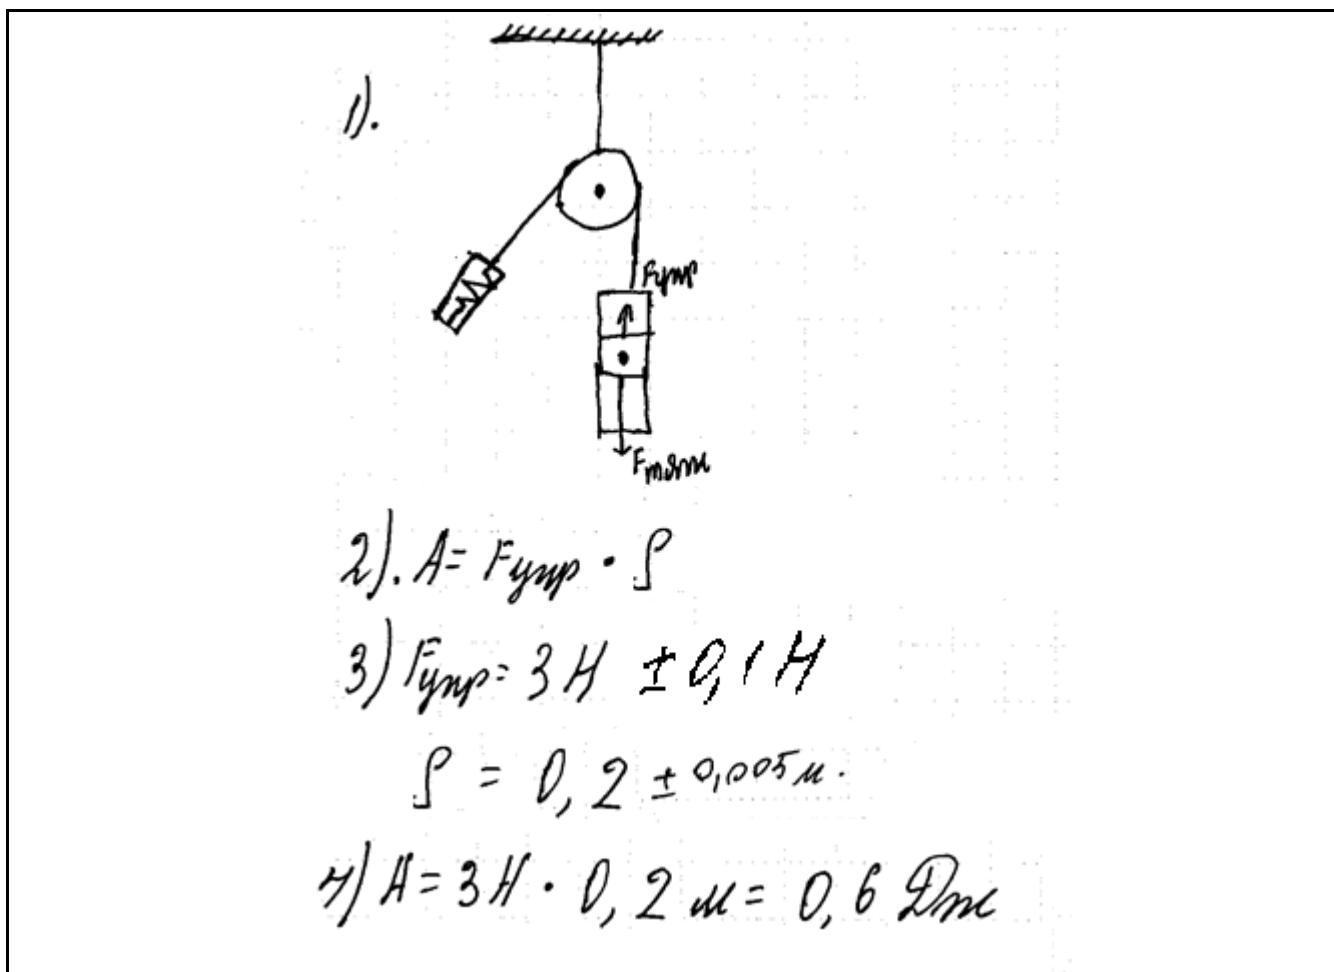 1).
Fупр
Fтяж
2). A = Fупр · S
3) Fупр = 3 Н ± 0,1 Н
S = 0,2 ± 0,005 м.
4) A = 3 Н · 0,2 м = 0,6 Дж